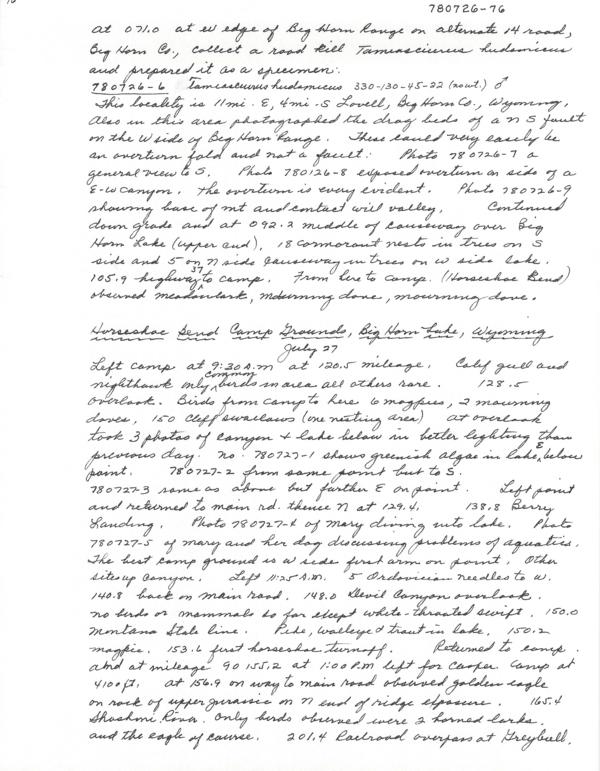 780726-76
at 071.0 at W edge of Big Horn Range on alternate 14 road,
Big Horn Co., collect a road kill Tamiasciurus hudsonicus
and prepared it as a specimen:
780726-6 Tamiasciurus hudsonicus 330-130-45-22 (no wt.) ♂
This locality is 11 mi. E, 4 mi. S Lovell, Big Horn Co., Wyoming.
Also in this area photographed the drag beds of a N S fault
on the W side of Big Horn Range. These could very easily be
an overturn fold and not a fault: Photo 780726-7 a
general view to S. Photo 780726-8 exposed overturn on side of a
E-W canyon. The overturn is every evident. Photo 780726-9
showing base of mt. and contact will valley. Continued
down grade and at 092.2 middle of causeway over Big
Horn Lake (upper end), 18 cormorant nests in trees on S
side and 5 on N side causeway in trees on W side lake.
105.9 highway 37 to camp. From here to camp. (Horseshoe Bend)
observed meadowlark, mourning dove, mourning dove.
Horseshoe Bend Camp Grounds, Big Horn Lake, Wyoming
July 27
Left camp at 9:30 A.M at 120.5 mileage. Calif gull and
nighthawk only common birds in area all others rare. 128.5
overlook. Birds from camp to here 6 magpies, 2 mourning
doves, 150 cliff swallows (one nesting area) at overlook
took 3 photos of canyon & lake below in better lighting than
previous day. no. 780727-1 shows greenish algae in lake, E below
point. 780727-2 from same point but to S.
780727-3 same as above but further E on point. Left point
and returned to main rd. thence N at 129.4. 138.8 Berry
Landing. Photo 780727-4 of Mary diving into lake. Photo
780727-5 of Mary and her dog discussing problems of aquatics.
The best camp ground is W side first arm on point. Other
sites up canyon. Left 11:25 A.M. 5 Ordovician needles to W.
140.8 back on main road. 148.0 Devil Canyon overlook.
no birds or mammals so far except white-throated swift. 150.0
Montana State line. Pike, walleye & trout in lake. 150.2
magpie. 153.6 first horseshoe turnoff. Returned to camp.
and at mileage 90155.2 at 1:00 P.M left for Casper. Camp at
4100 ft. at 156.9 on way to main road observed golden eagle
on rock of upper jurassic on N end of ridge exposure. 165.4
Shoshoni River. Only birds observed were 2 horned larks.
and the eagle of course. 201.4 Railroad overpass at Greybull.